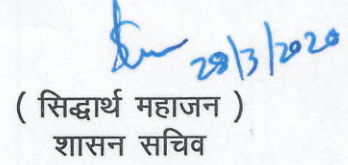 28/3/2020
( सिद्धार्थ महाजन )
शासन सचिव